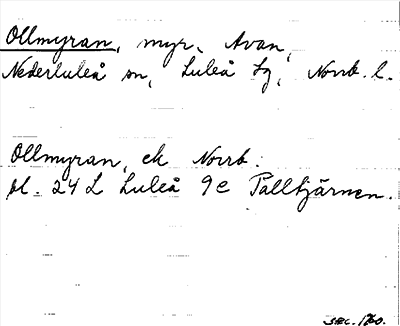 Ollmyran, myr, Avan,
Nederluleå sn, Luleå tg, Norrb. l.
Ollmyran, ek Norrb.
bl. 24 L Luleå 9e Talltjärnen.
1960.